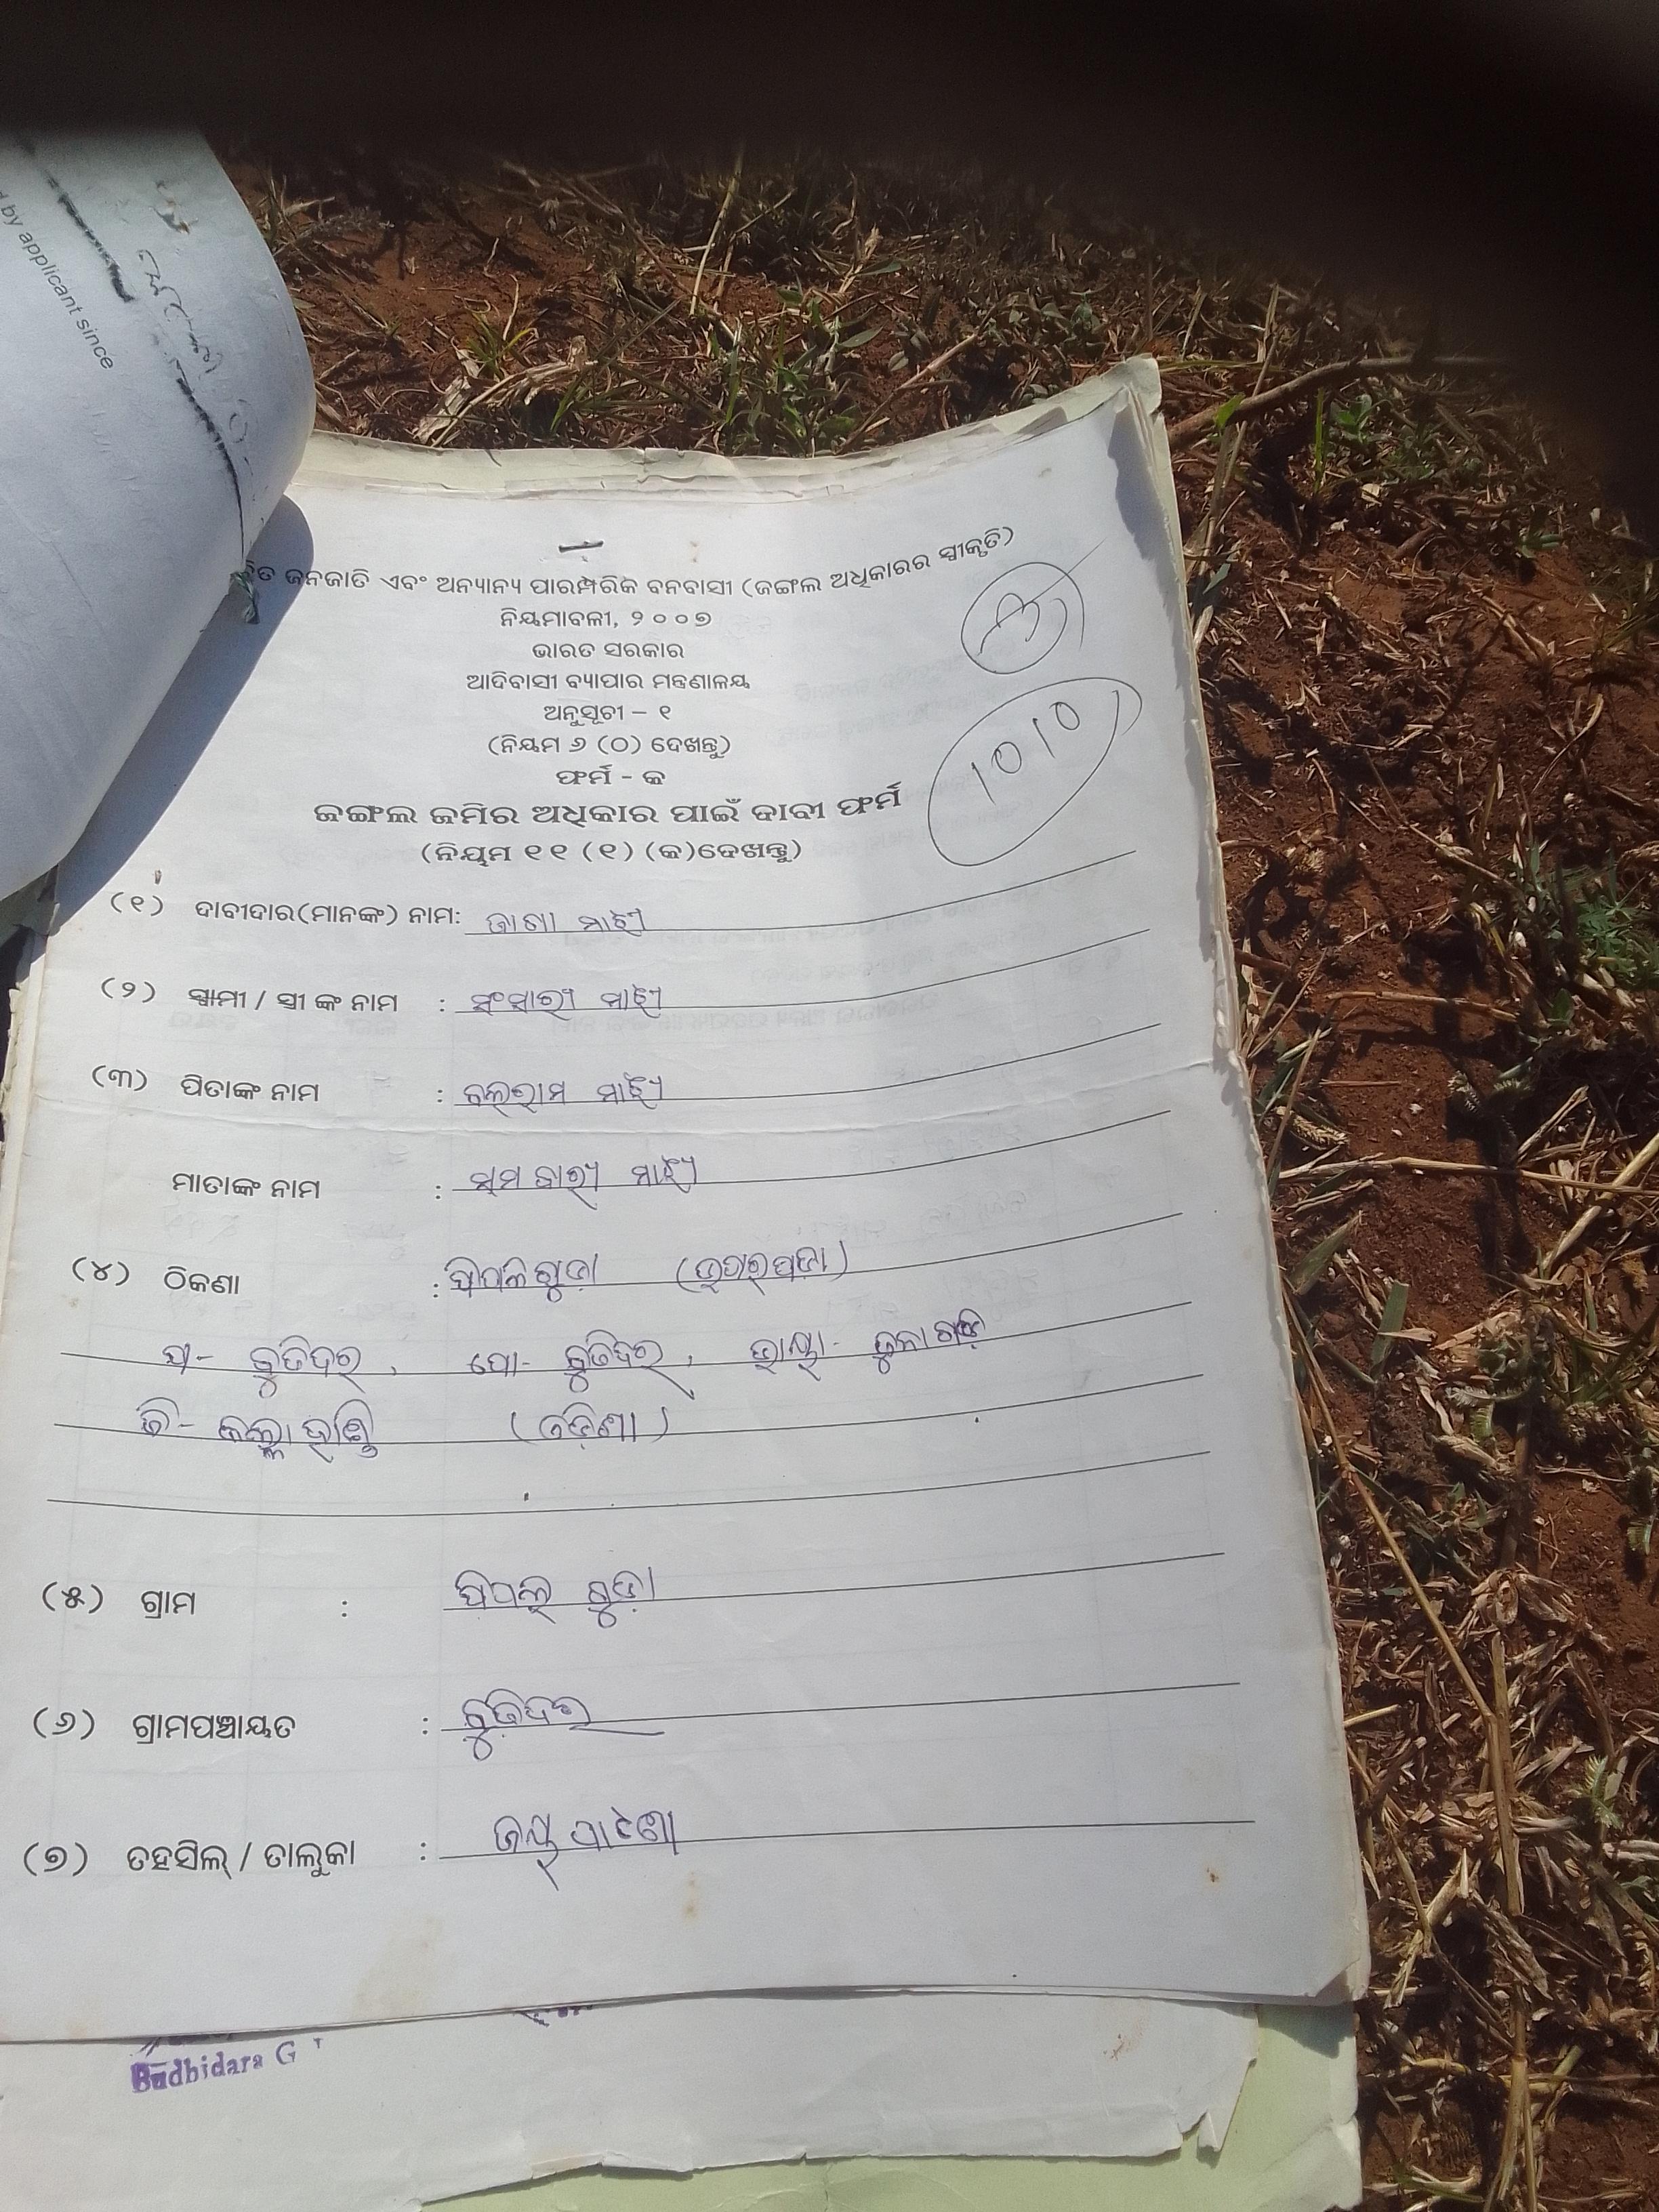 d by applicant since
ଜନଜାତି ଏବଂ ଅନ୍ୟାନ୍ୟ ପାରମ୍ପରିକ ବନବାସୀ (ଜଙ୍ଗଲ ଅଧିକାରର ସ୍ୱୀକୃତି)
ନିୟମାବଳୀ, ୨୦୦୭
ଭାରତ ସରକାର
ଆଦିବାସୀ ବ୍ୟାପାର ମନ୍ତ୍ରଣାଳୟ
ଅନୁସୂଚୀ – ୧
(ନିୟମ ୬ (ଠ) ଦେଖନ୍ତୁ)
ଫର୍ମ - କ
1010
ଜଙ୍ଗଲ ଜମିର ଅଧିକାର ପାଇଁ ଦାବୀ ଫର୍ମ
(ନିୟମ ୧୧ (୧) (କ)ଦେଖନ୍ତୁ)
(୧) ଦାବୀଦାର(ମାନଙ୍କ) ନାମ: ମାଝୀ
(୨) ସ୍ୱାମୀ / ସ୍ତ୍ରୀ ଙ୍କ ନାମ : ସଂସାରୀ ମାଝୀ
(୩) ପିତାଙ୍କ ନାମ : ବଲରାମ ମାଝୀ
ମାତାଙ୍କ ନାମ : ମାଝୀ
(୪) ଠିକଣା : ପିପଳଗୁଡା (ଉପରପଡା)
ବୁଢିଦର, ପୋ- ବୁଢିଦର, ଭାୟା-
ଜି- (ଓଡ଼ିଶା)
(୫) ଗ୍ରାମ : ପିପଲ୍ ଗୁଡ଼ା
(୬) ଗ୍ରାମପଞ୍ଚାୟତ : ବୁଢିଦର
(୭) ତହସିଲ୍ / ତାଲୁକା : ଜୟ୍ ପାଟଣା
Budbidara G